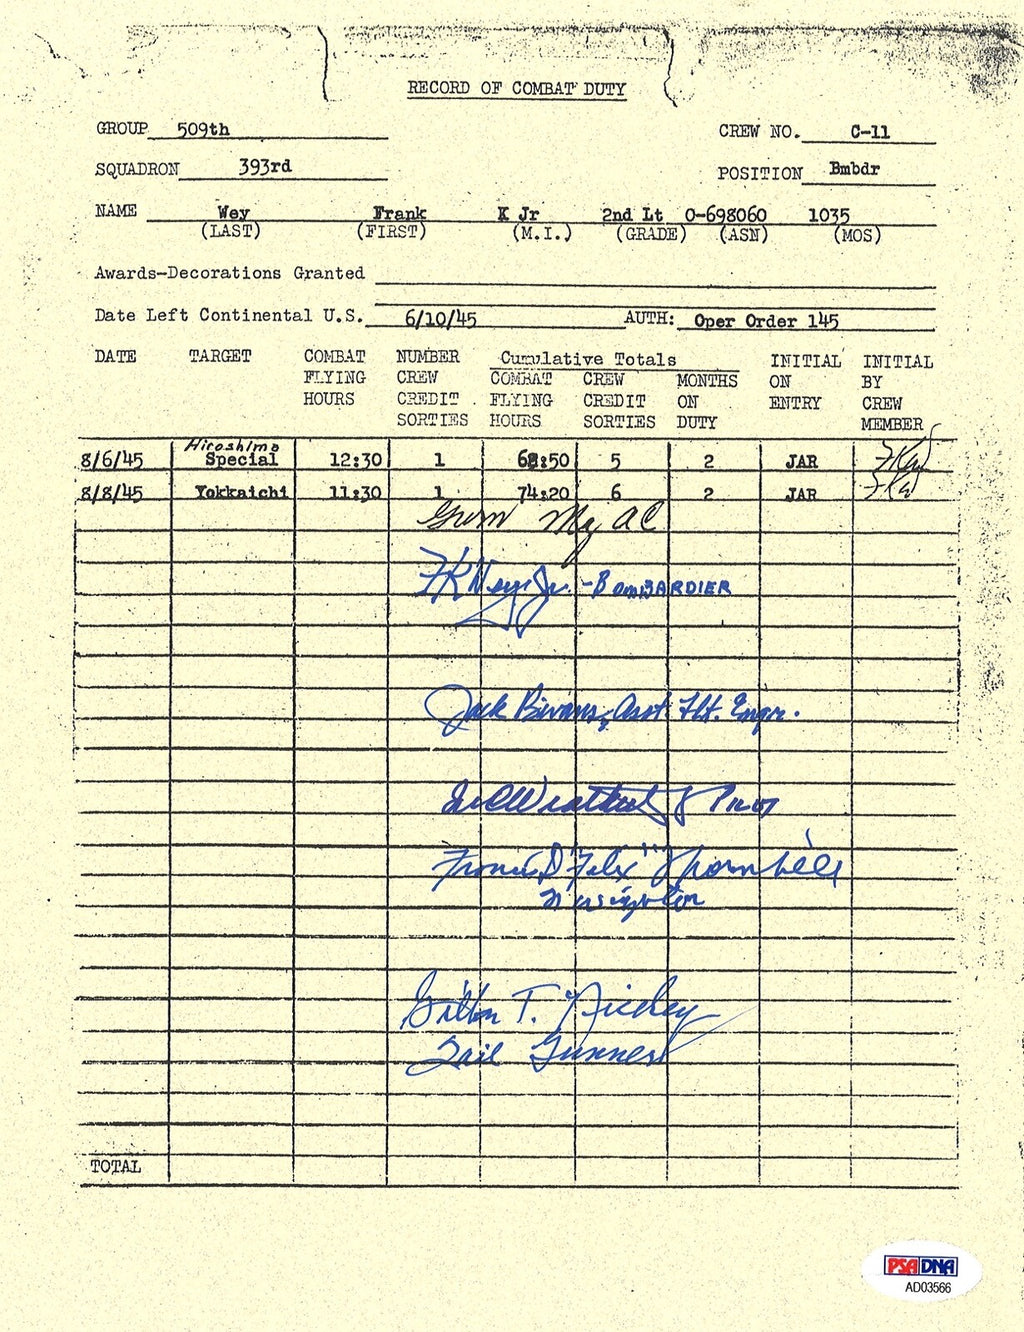 RECORD OF COMBAT DUTY
GROUP 509th CREW NO. C-11
SQUADRON 393rd POSITION Bmbdr
NAME Wey Frank K Jr 2nd Lt O-698060 1035
(LAST) (FIRST) (M.I.) (GRADE) (ASN) (MOS)
Awards-Decorations Granted
Date Left Continental U.S. 6/10/45 AUTH: Oper Order 145
DATE TARGET COMBAT FLYING HOURS NUMBER CREW CREDIT SORTIES Cumulative Totals COMBAT FLYING HOURS CREW CREDIT SORTIES MONTHS ON DUTY INITIAL ON ENTRY INITIAL BY CREW MEMBER
Hiroshima
8/6/45 Special 12:30 1 62:50 5 2 JAR FKW
8/8/45 Yokkaichi 11:30 1 74:20 6 2 JAR FKW
Maj AC
FKWey Jr. - BOMBARDIER
Jack Bivans, Asst. Flt. Engr.
Pilot
Francis D "Felix" Thornhill
Navigator
Gillon T. Niceley
Tail Gunner
TOTAL
PSA DNA
AD03566